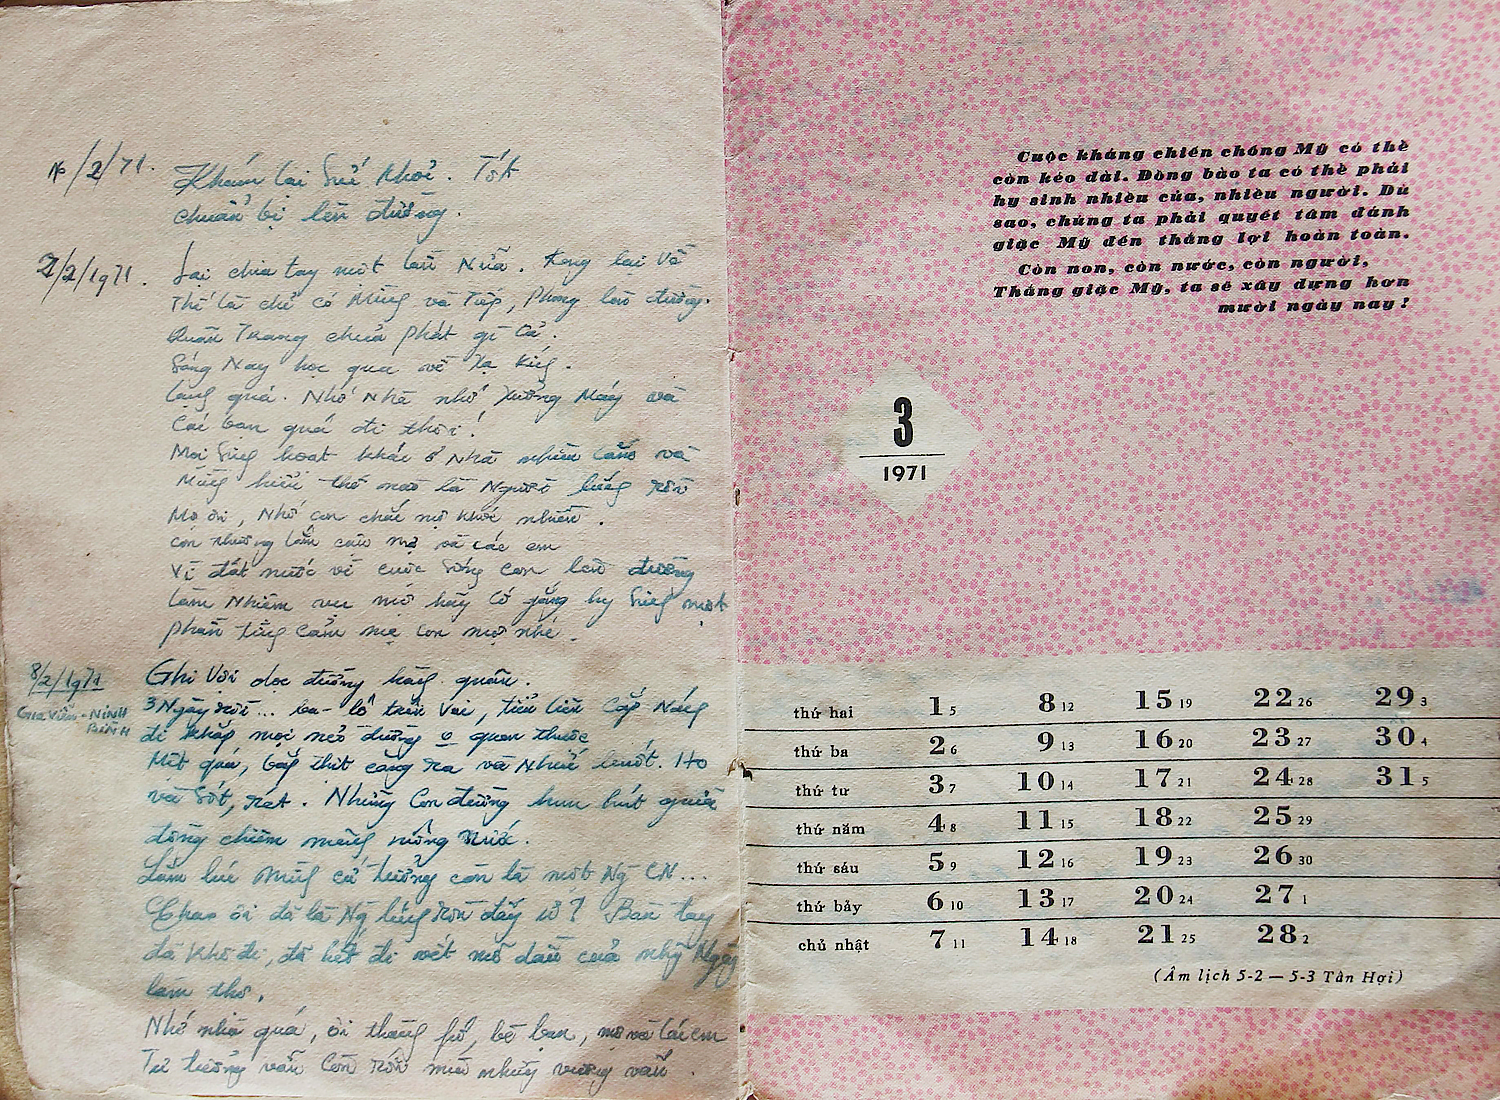 /2/71. Khám lại Sức Khỏe. Tốt
chuẩn bị lên đường.
2/2/1971. Lại chia tay một lần Nữa. Long lại Về
Thế là chỉ có Mình và Tiếp, Phong lên đường.
Quân Trang chưa phát gì Cả.
Sáng Nay học qua về Xạ Kích.
quá. Nhớ Nhà nhớ Xưởng Máy và
Các bạn quá đi thôi!
Mọi Sinh hoạt khác ở Nhà nhiều lắm và
Mình hiểu thế nào là Người lính rồi
Mẹ ơi, Nhớ con chắc mẹ khóc nhiều.
con thương lắm cơ mẹ và các em
Vì đất nước vì cuộc Sống con lên đường
làm Nhiệm vụ mẹ hãy Cố gắng hy Sinh một
phần tình cảm mẹ con mẹ nhé.
8/2/1971 Ghi Vội dọc đường hành quân.
Gia Viễn - NINH BÌNH
3 Ngày rồi... ba-lô trên Vai, tiểu liên Cắp Nách
đi khắp mọi nẻo đường o quen thuộc
Mệt quá, bắp thịt căng ra và Nhức buốt. Ho
và Sốt, rét. Những Con đường hun hút giữa
đồng chiêm mênh mông nước.
Lắm lúc Mình cứ tưởng còn là một Ng CN...
Chao ôi đã là Ng lính rồi đấy ư? Bàn tay
đã khô đi, đã hết đi vết mồ dầu của nhg Ngày
làm thợ.
Nhớ nhà quá, ôi thành fố, bè bạn, mẹ và các em
Tư tưởng vẫn Còn rối mù những vương vấn.
Cuộc kháng chiến chống Mỹ có thể
còn kéo dài. Đồng bào ta có thể phải
hy sinh nhiều của, nhiều người. Dù
sao, chúng ta phải quyết tâm đánh
giặc Mỹ đến thắng lợi hoàn toàn.
Còn non, còn nước, còn người,
Thắng giặc Mỹ, ta sẽ xây dựng hơn
mười ngày nay!
3
1971
thứ hai 1 5 8 12 15 19 22 26 29 3
thứ ba 2 6 9 13 16 20 23 27 30 4
thứ tư 3 7 10 14 17 21 24 28 31 5
thứ năm 4 8 11 15 18 22 25 29
thứ sáu 5 9 12 16 19 23 26 30
thứ bảy 6 10 13 17 20 24 27 1
chủ nhật 7 11 14 18 21 25 28 2
(Âm lịch 5-2 — 5-3 Tân Hợi)